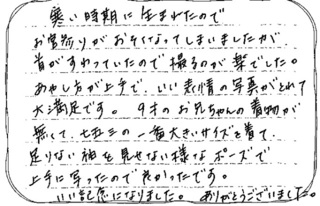 寒い時期に生まれたので
お宮参りがおそくなってしまいましたが、
首がすわっていたので撮るのが楽でした。
あやし方が上手で、いい表情の写真がとれて
大満足です。9才のお兄ちゃんの着物が
無くて、七五三の一番大きいサイズを着て、
足りない袖を見せない様なポーズで
上手に写ったので良かったです。
いい記念になりました。ありがとうございました。